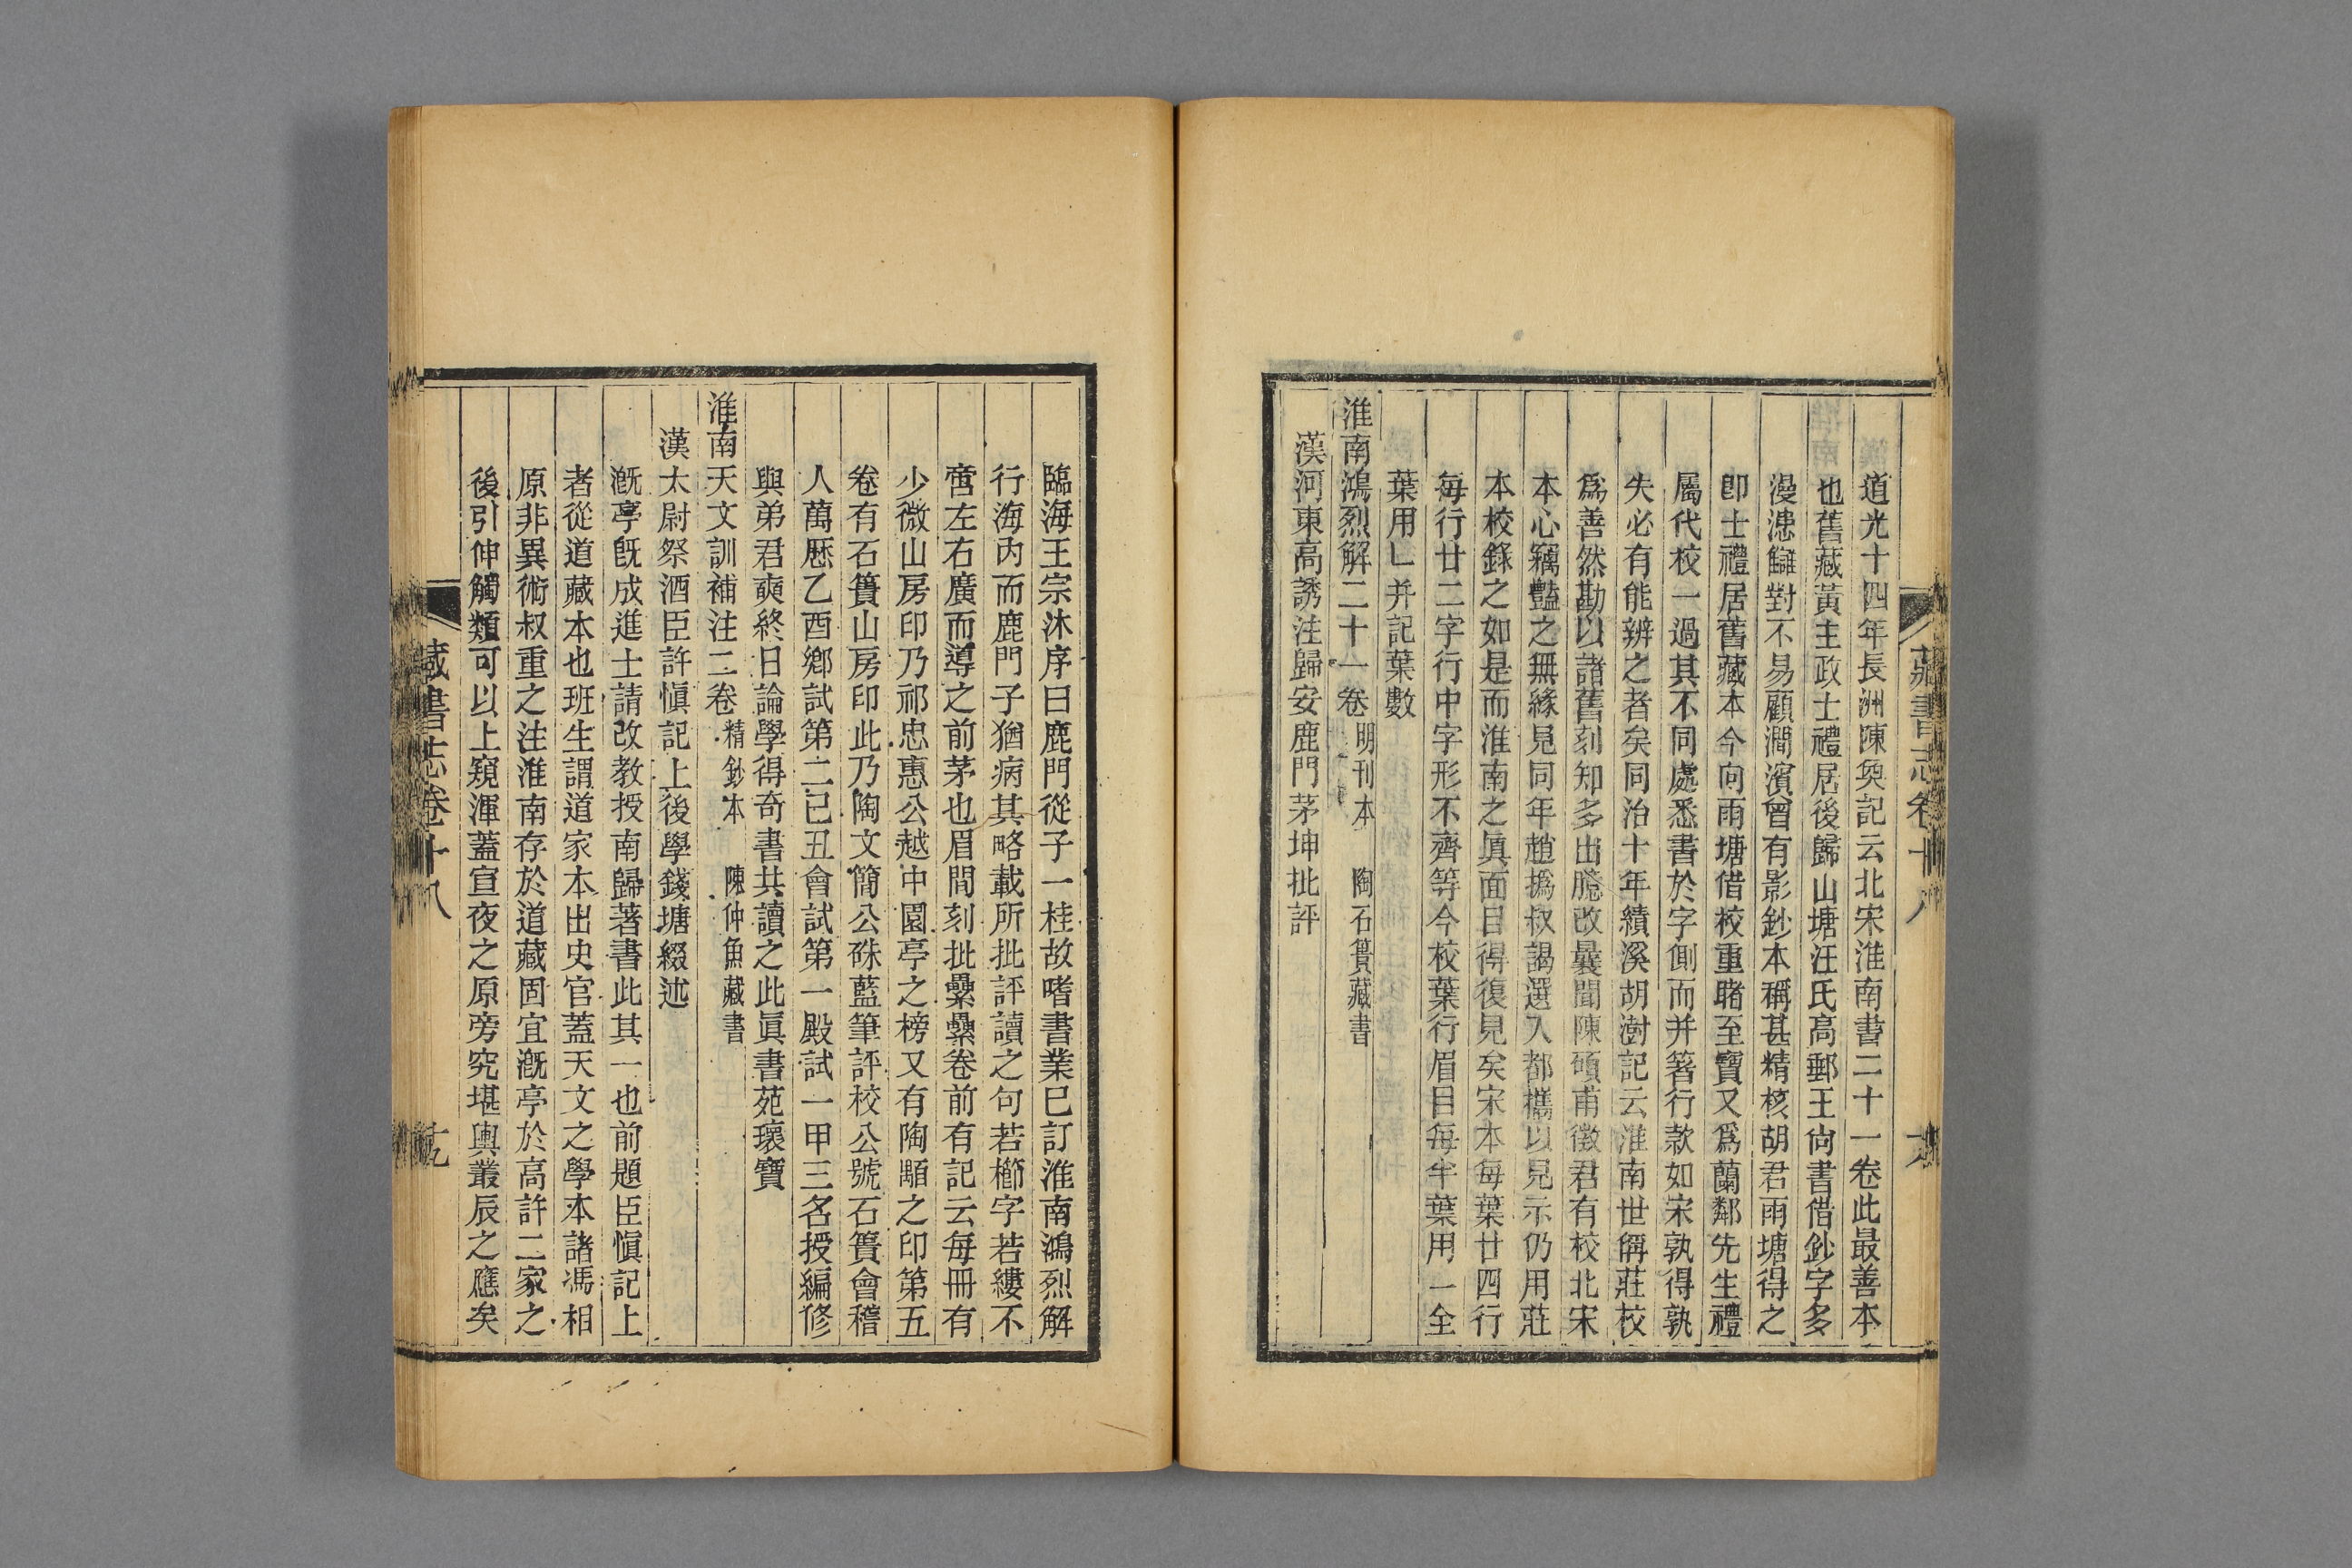 道光十四年長洲陳奐記云北宋淮南書二十一卷此最善本
也舊藏黃主政士禮居後歸山塘汪氏高郵王尙書借鈔字多
漫漶讎對不易顧澗濱曾有影鈔本稱甚精核胡君雨塘得之
卽士禮居舊藏本今向雨塘借校重睹至寶又爲蘭鄰先生禮
屬代校一過其不同處悉書於字側而并箸行款如宋孰得孰
失必有能辨之者矣同治十年績溪胡澍記云淮南世稱莊校
爲善然勘以諸舊刻知多出臆改曩聞陳碩甫徵君有校北宋
本心竊豔之無緣見同年趙撝叔謁選入都攜以見示仍用莊
本校錄之如是而淮南之眞面目得復見矣宋本每葉廿四行
每行廿二字行中字形不齊等今校葉行眉目每半葉用一全
葉用乚并記葉數
淮南鴻烈解二十一卷 明刊本 陶石簣藏書
漢河東高誘注歸安鹿門茅坤批評
藏書志卷十八
臨海王宗沐序曰鹿門從子一桂故嗜書業已訂淮南鴻烈解
行海內而鹿門子猶病其略載所批評讀之句若櫛字若縷不
啻左右廣而導之前茅也眉間刻批纍纍卷前有記云每冊有
少微山房印乃祁忠惠公越中園亭之榜又有陶顒之印第五
卷有石簣山房印此乃陶文簡公硃藍筆評校公號石簣會稽
人萬厯乙酉鄉試第二己丑會試第一殿試一甲三名授編修
與弟君奭終日論學得奇書共讀之此眞書苑瓌寶
淮南天文訓補注二卷 精鈔本 陳仲魚藏書
漢太尉祭酒臣許愼記上後學錢塘綴述
溉亭旣成進士請改教授南歸著書此其一也前題臣愼記上
者從道藏本也班生謂道家本出史官蓋天文之學本諸馮相
原非異術叔重之注淮南存於道藏固宜溉亭於高許二家之
後引伸觸類可以上窺渾蓋宣夜之原旁究堪輿叢辰之應矣
藏書志卷十八